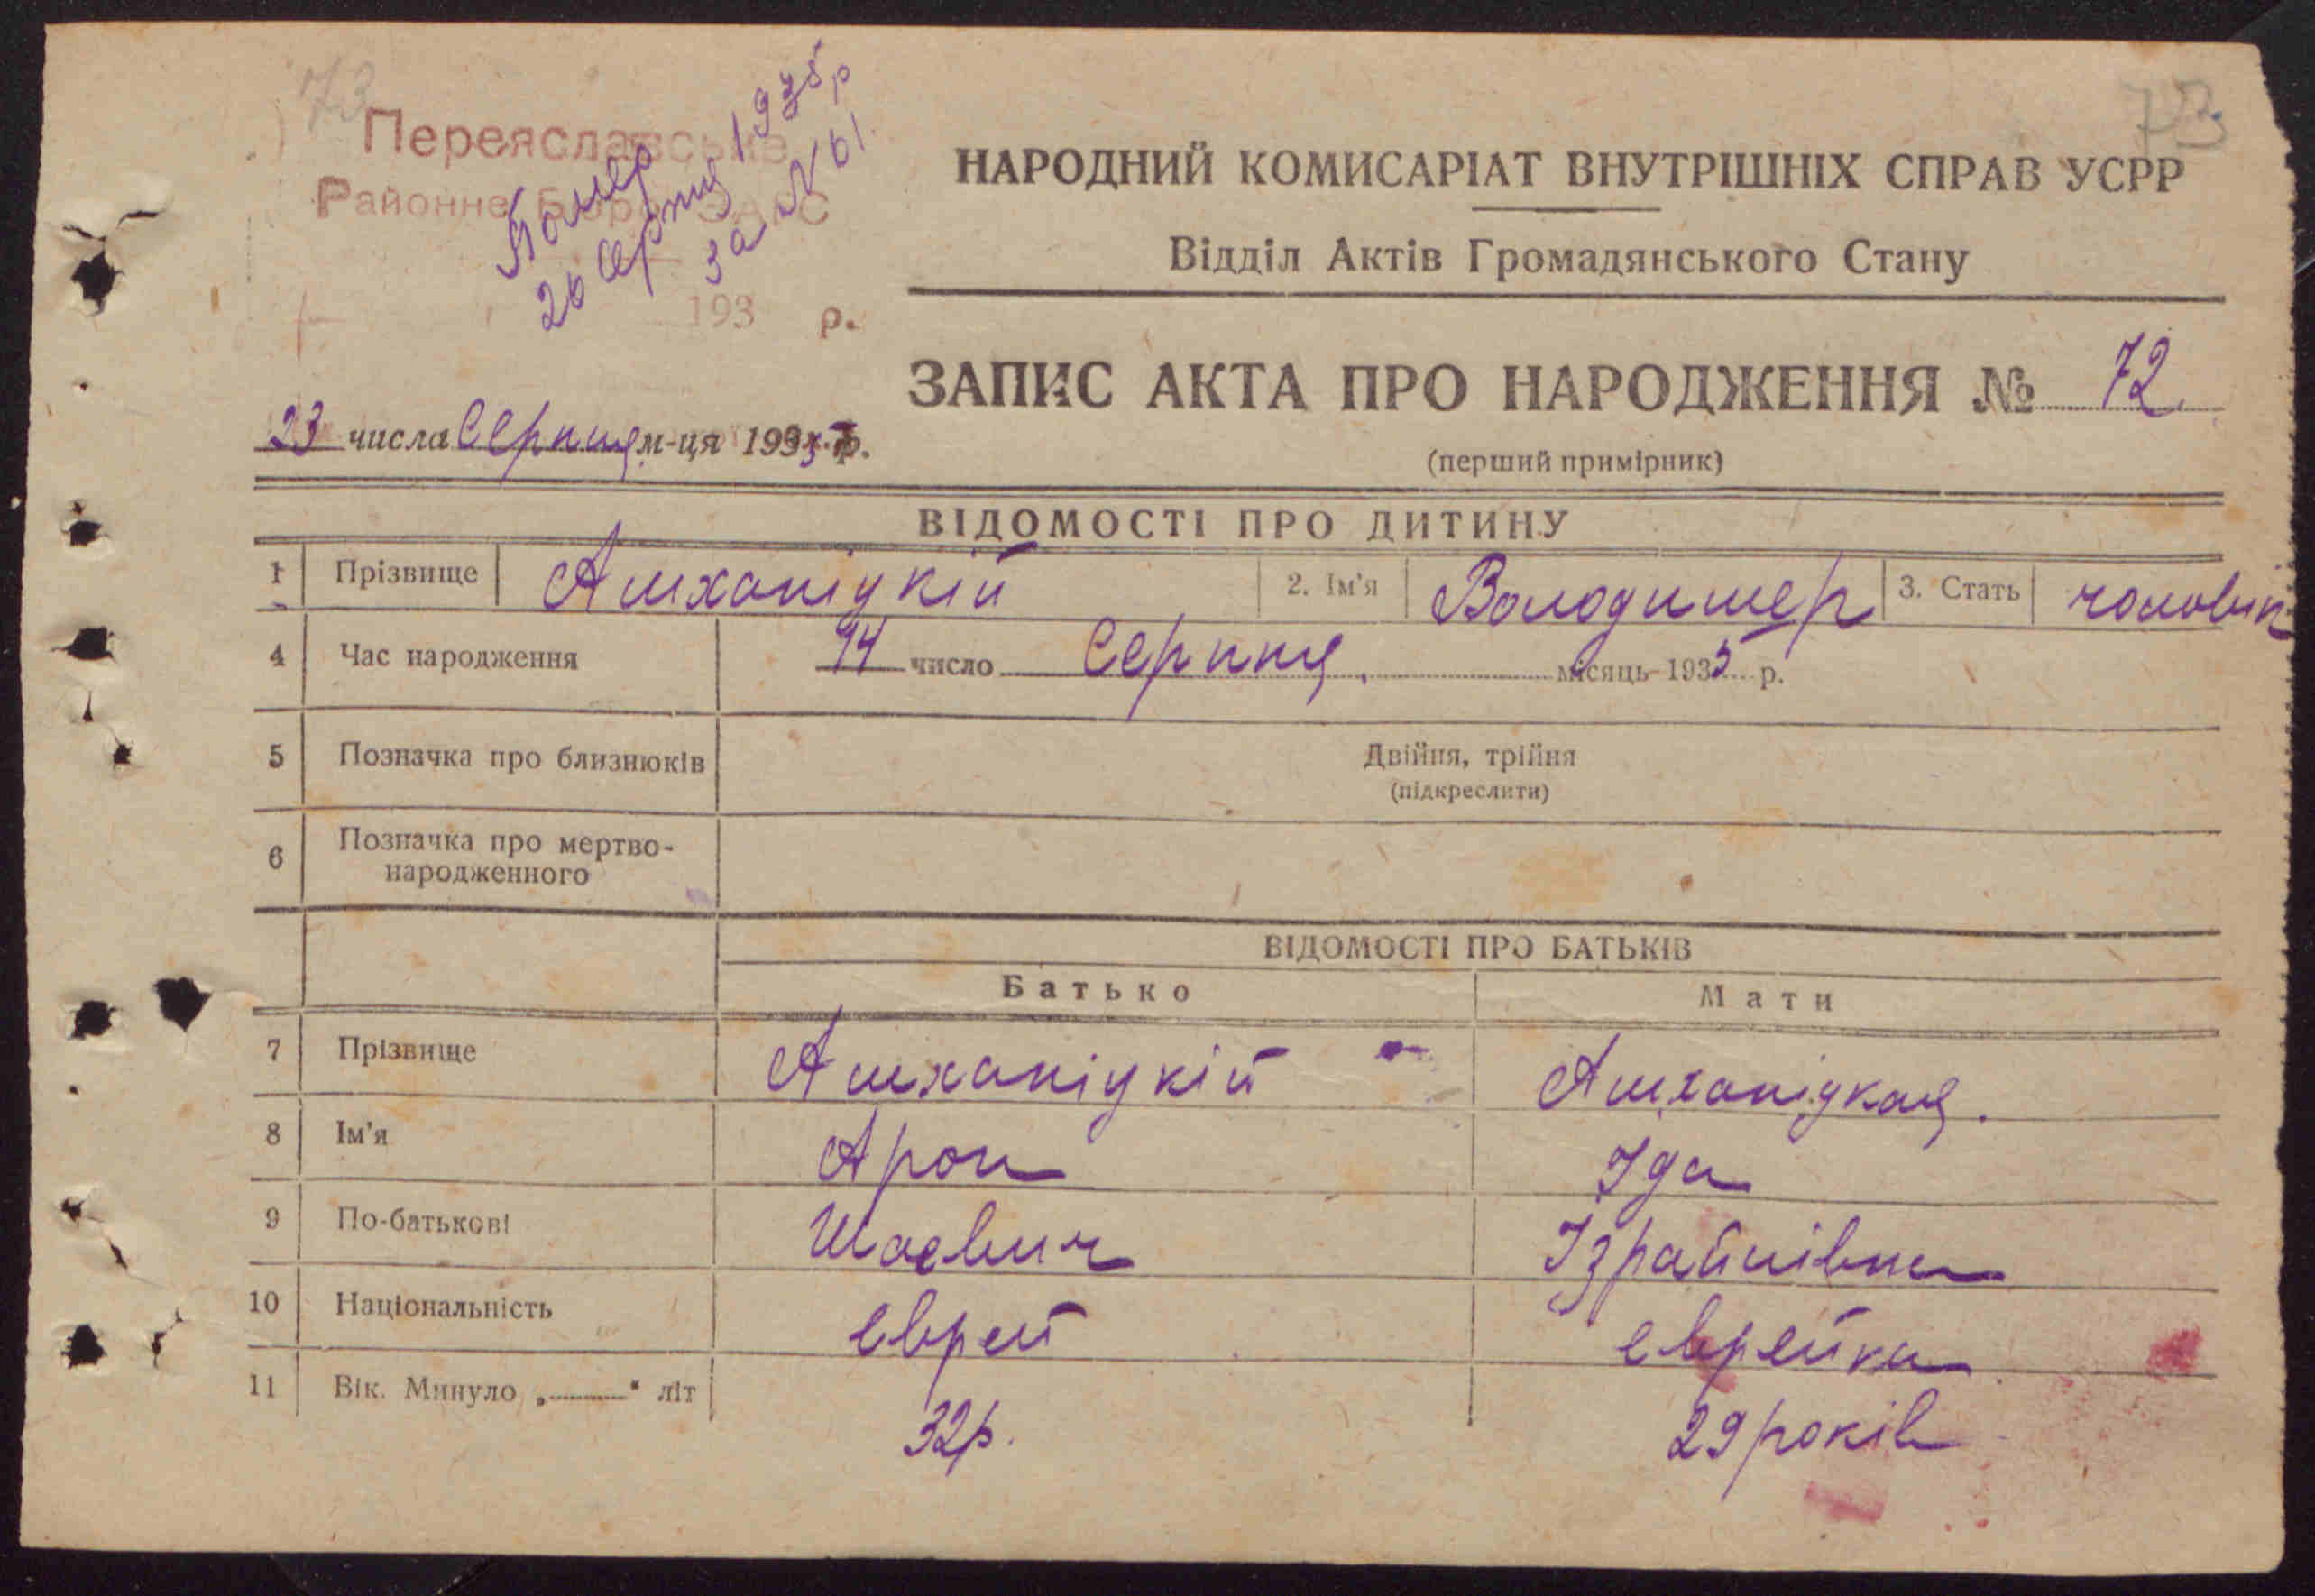 73
73
Переяславське
Районне Бюро ЗАГС
Помер
26 серпня 1935 р
за № 61
193 р.
НАРОДНИЙ КОМИСАРІАТ ВНУТРІШНІХ СПРАВ УСРР
Відділ Актів Громадянського Стану
ЗАПИС АКТА ПРО НАРОДЖЕННЯ № 72
23 числа Серпня м-ця 1935 р.
(перший примірник)
ВІДОМОСТІ ПРО ДИТИНУ
1 Прізвище Амханіцкій 2. Ім'я Володимер 3. Стать чоловік
4 Час народження 14 число Серпня місяць 1935 р.
5 Позначка про близнюків Двійня, трійня
(підкреслити)
6 Позначка про мертво-
народженного
ВІДОМОСТІ ПРО БАТЬКІВ
Батько Мати
7 Прізвище Амханіцкій Амханіцкая.
8 Ім'я Арон Іда
9 По-батькові Шаєвич Ізрайлівна
10 Національність еврей еврейка
11 Вік. Минуло „ “ літ 32 р. 29 років